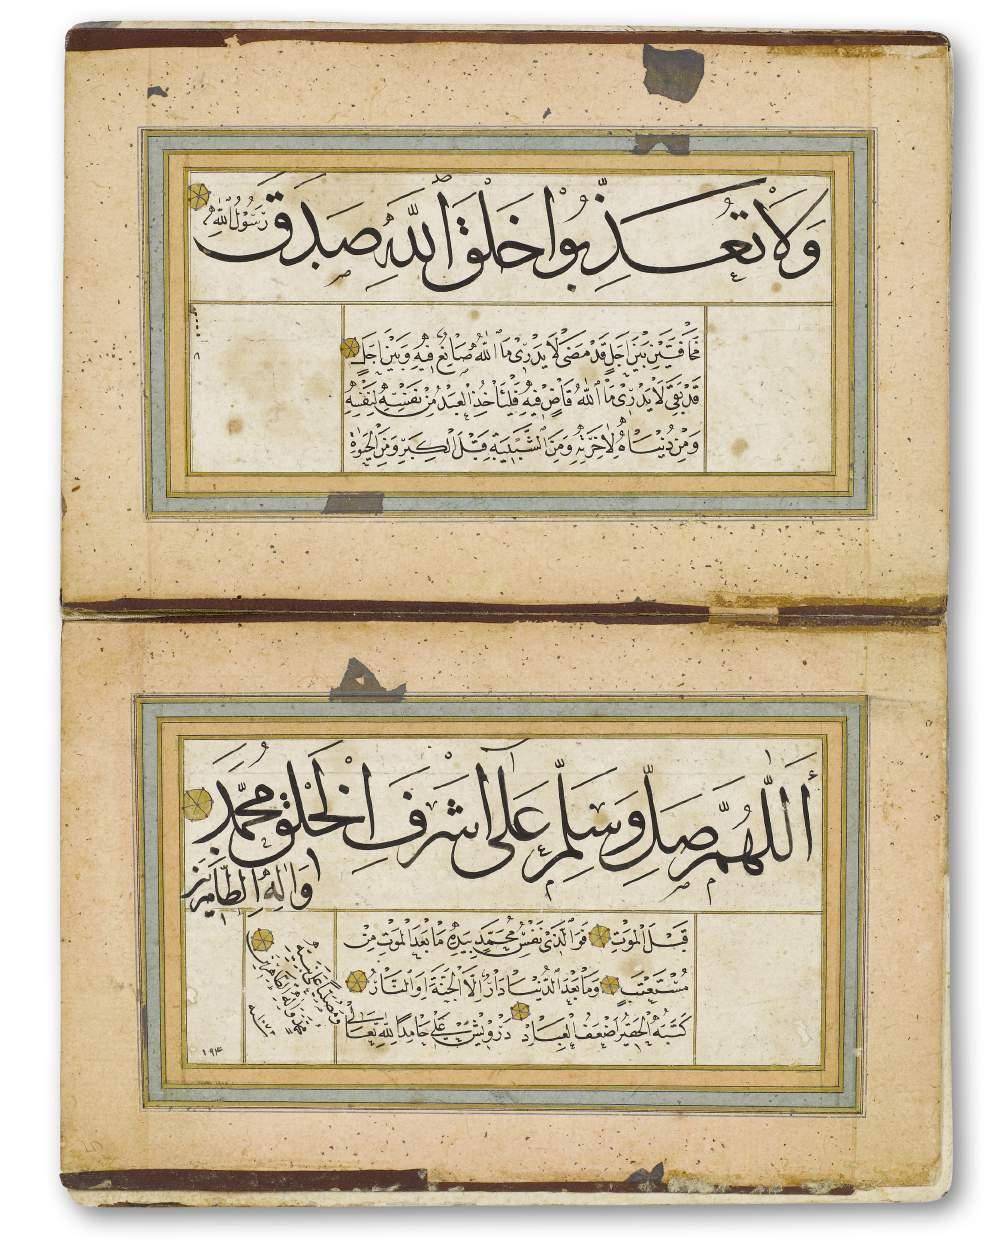 وَلَا تُعَذِّبُوا خَلَقَ اللّٰهِ صَدَقَ
رَسُولُ اللّٰهِ
مَخَافَتَيْنِ بَيْنَ اَجَلٍ قَدْ مَضٰى لَا يَدْرِى مَا اللّٰهُ صَانِعٌ فِيهِ وَبَيْنَ اَجَلٍ
قَدْ بَقِىَ لَا يَدْرِى مَا اللّٰهُ قَاضٍ فِيهِ فَلْيَأْخُذِ الْعَبْدُ مِنْ نَفْسِهِ لِنَفْسِهِ
وَمِنْ دُنْيَاهُ لِاٰخِرَتِهِ وَمِنَ الشَّبِيبَةِ قَبْلَ الْكِبَرِ وَمِنَ الْحَيٰوةِ
اَللّٰهُمَّ صَلِّ وَسَلِّمْ عَلٰى اَشْرَفِ الْخَلْقِ مُحَمَّدٍ
وَاٰلِهِ الطَّاهِرِينَ
قَبْلَ الْمَوْتِ فَوَالَّذِى نَفْسُ مُحَمَّدٍ بِيَدِهِ مَا بَعْدَ الْمَوْتِ مِنْ
مُسْتَعْتَبٍ وَمَا بَعْدَ الدُّنْيَا دَارٌ اِلَّا الْجَنَّةَ اَوِ النَّارُ
كَتَبَهُ الْحَقِيرُ اَضْعَفُ الْعِبَادِ دَرْوِيش عَلِى حَامِدًا لِلّٰهِ تَعَالٰى
وَمُصَلِّيًا عَلٰى نَبِيِّهِ
مُحَمَّدٍ وَاٰلِهِ الطَّاهِرِينَ
سنه ١٠٧٢
١٩٤